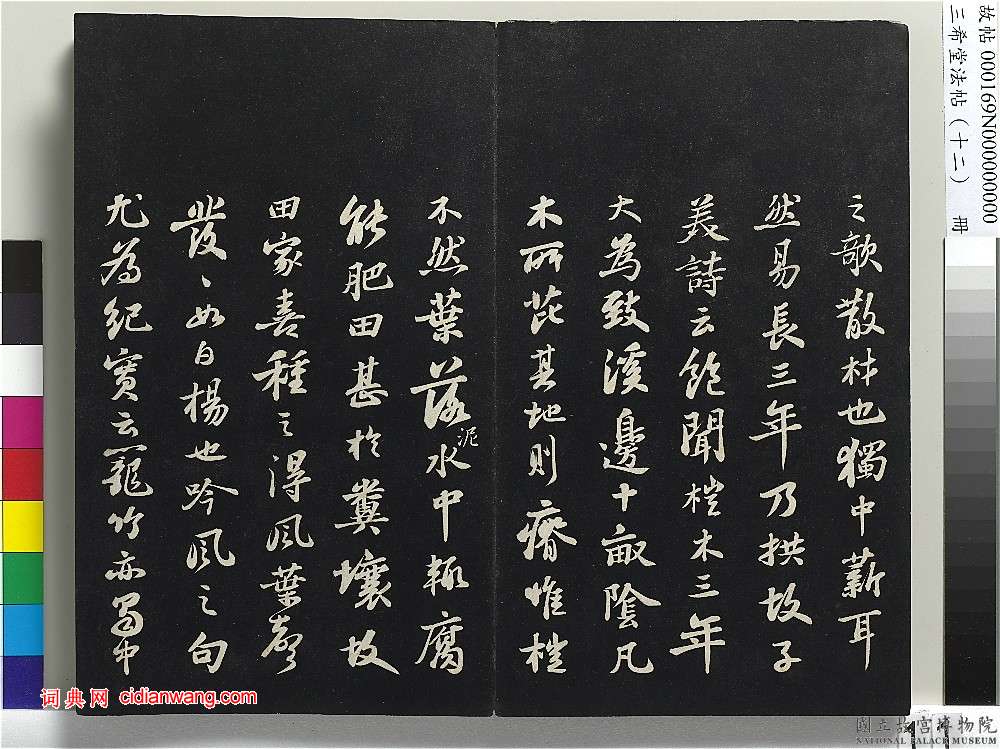 之欹散材也獨中薪耳
然易長三年乃拱故子
美詩云飽聞榿木三年
大為致溪邊十畝陰凡
木所芘其地則瘠惟榿
不然葉落泥水中輒腐
能肥田甚於糞壤故
田家喜種之得風葉聲
發〻如白楊也吟風之句
尤為紀實云籠竹亦蜀中
故帖 000169N000000000
三希堂法帖(十二) 冊
词典网 cidianwang.com
國立故宮博物院
NATIONAL PALACE MUSEUM